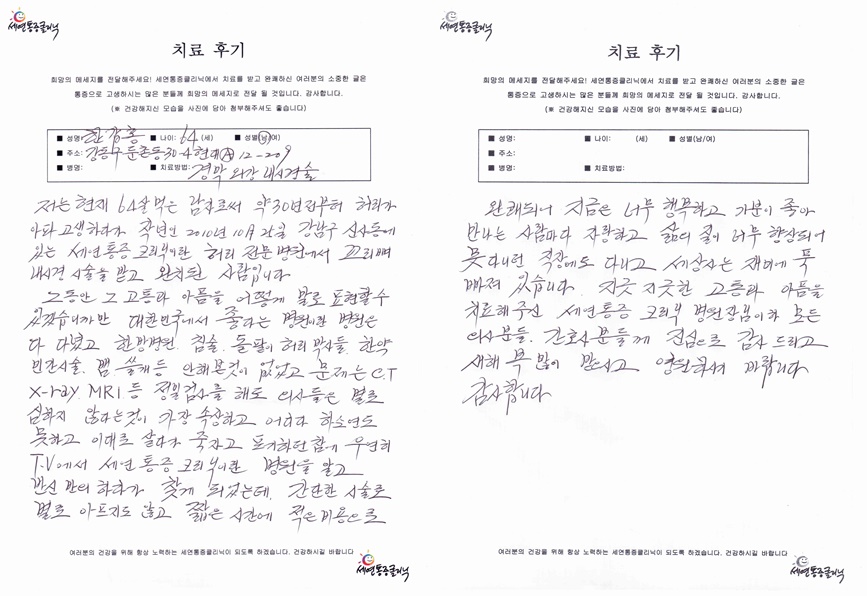 세연통증클리닉
치료 후기
희망의 메세지를 전달해주세요! 세연통증클리닉에서 치료를 받고 완쾌하신 여러분의 소중한 글은
통증으로 고생하시는 많은 분들께 희망의 메세지로 전달 될 것입니다. 감사합니다.
(※ 건강해지신 모습을 사진에 담아 첨부해주셔도 좋습니다)
■ 성명: ■ 나이: 64 (세) ■ 성별(남/여)
■ 주소: 강동구 둔촌동 30-4 현대 A 12-209
■ 병명: ■ 치료방법: 경막 외강 내시경술
저는 현재 64살먹은 남자로써 약 30년전부터 허리가
아파 고생하다가 작년인 2010년 10月 강남구 신사동에
있는 세연통증 크리닉이란 허리 전문병원에서 꼬리뼈
내시경 시술을 받고 완치된 사람입니다
그동안 그 고통과 아픔을 어떻게 말로 표현할수
있겠습니까만 대한민국에서 좋다는 병원이란 병원은
다 다녔고 한방병원, 침술, 돌팔이 허리박사들, 한약
민간시술, 뱀 쓸개등 안해본것이 없었고 문제는 C.T
X-ray MRI 등 정밀검사를 해도 의사들은 별로
심하지 않다는것이 가장 속상하고 어디다 하소연도
못하고 이대로 살다가 죽자고 포기하던 우연히
T.V에서 세연통증 크리닉이란 병원을 알고
반신 반의 하다가 찾게 되었는데, 간단한 시술로
별로 아프지도 않고 짧은 시간에 적은비용으로
여러분의 건강을 위해 항상 노력하는 세연통증클리닉이 되도록 하겠습니다. 건강하시길 바랍니다
세연통증클리닉
세연통증클리닉
치료 후기
희망의 메세지를 전달해주세요! 세연통증클리닉에서 치료를 받고 완쾌하신 여러분의 소중한 글은
통증으로 고생하시는 많은 분들께 희망의 메세지로 전달 될 것입니다. 감사합니다.
(※ 건강해지신 모습을 사진에 담아 첨부해주셔도 좋습니다)
■ 성명: ■ 나이: (세) ■ 성별(남/여)
■ 주소:
■ 병명: ■ 치료방법:
완쾌되니 지금은 너무 행복하고 기분이 좋아
만나는 사람마다 자랑하고 삶의 질이 너무 향상되어
못다니던 직장에도 다니고 세상사는 재미에 푹
빠져 있습니다. 지긋 지긋한 고통과 아픔을
치료해주신 세연통증 크리닉 병원장님이하 모든
의사분들, 간호사분들께 진심으로 감사 드리고
새해 복 많이 받으시고 바랍니다
감사합니다
여러분의 건강을 위해 항상 노력하는 세연통증클리닉이 되도록 하겠습니다. 건강하시길 바랍니다
세연통증클리닉